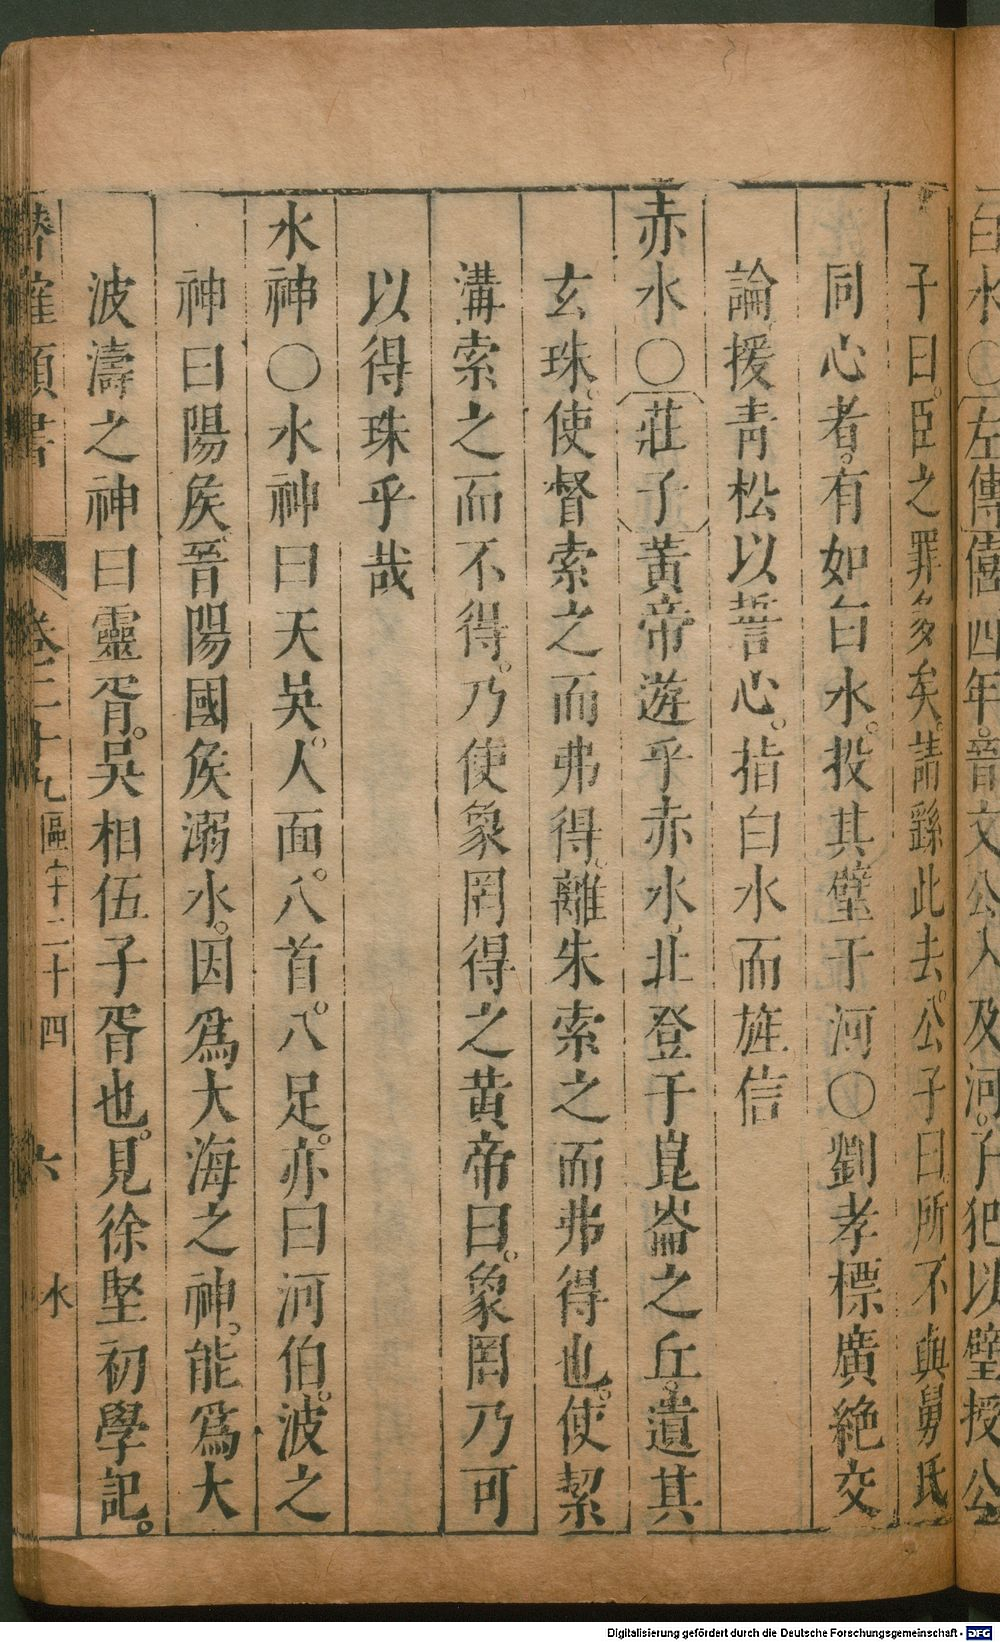 白水〇左傳僖四年晉文公入及河子犯以璧授公
子曰臣之罪多矣請繇此去公子曰所不與舅氏
同心者有如白水投其璧于河〇劉孝標廣絶交
論援青松以誓心指白水而旌信
赤水〇莊子黃帝遊乎赤水北登于崑崙之丘遺其
玄珠使督索之而弗得離朱索之而弗得也使絜
溝索之而不得乃使象罔得之黃帝曰象罔乃可
以得珠乎哉
水神〇水神曰天吳人面八首八足亦曰河伯波之
神曰陽矦晉陽國矦溺水因爲大海之神能爲大
波濤之神曰靈胥吳相伍子胥也見徐堅初學記
確類書
卷二十九 區宇二十四 六 水
Digitalisierung gefördert durch die Deutsche Forschungsgemeinschaft - DFG